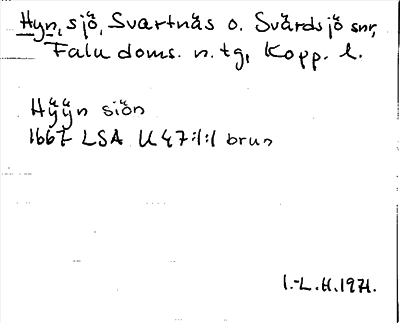 Hyn, sjö, Svartnäs o. Svärdsjö snr,
Falu doms. n. tg, Kopp. l.
Hÿÿn siön
1667 LSA U47:1:1 brun
I.-L. H. 1971.